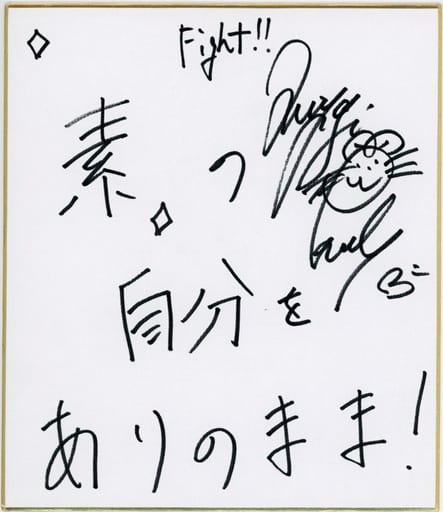 Fight!!
素っ
自分を
ありのまま!